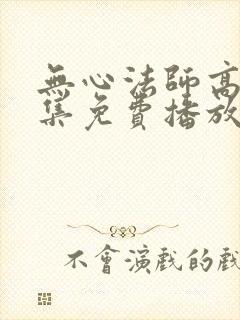 無心法師高
集免費播放
不會演戲的戲